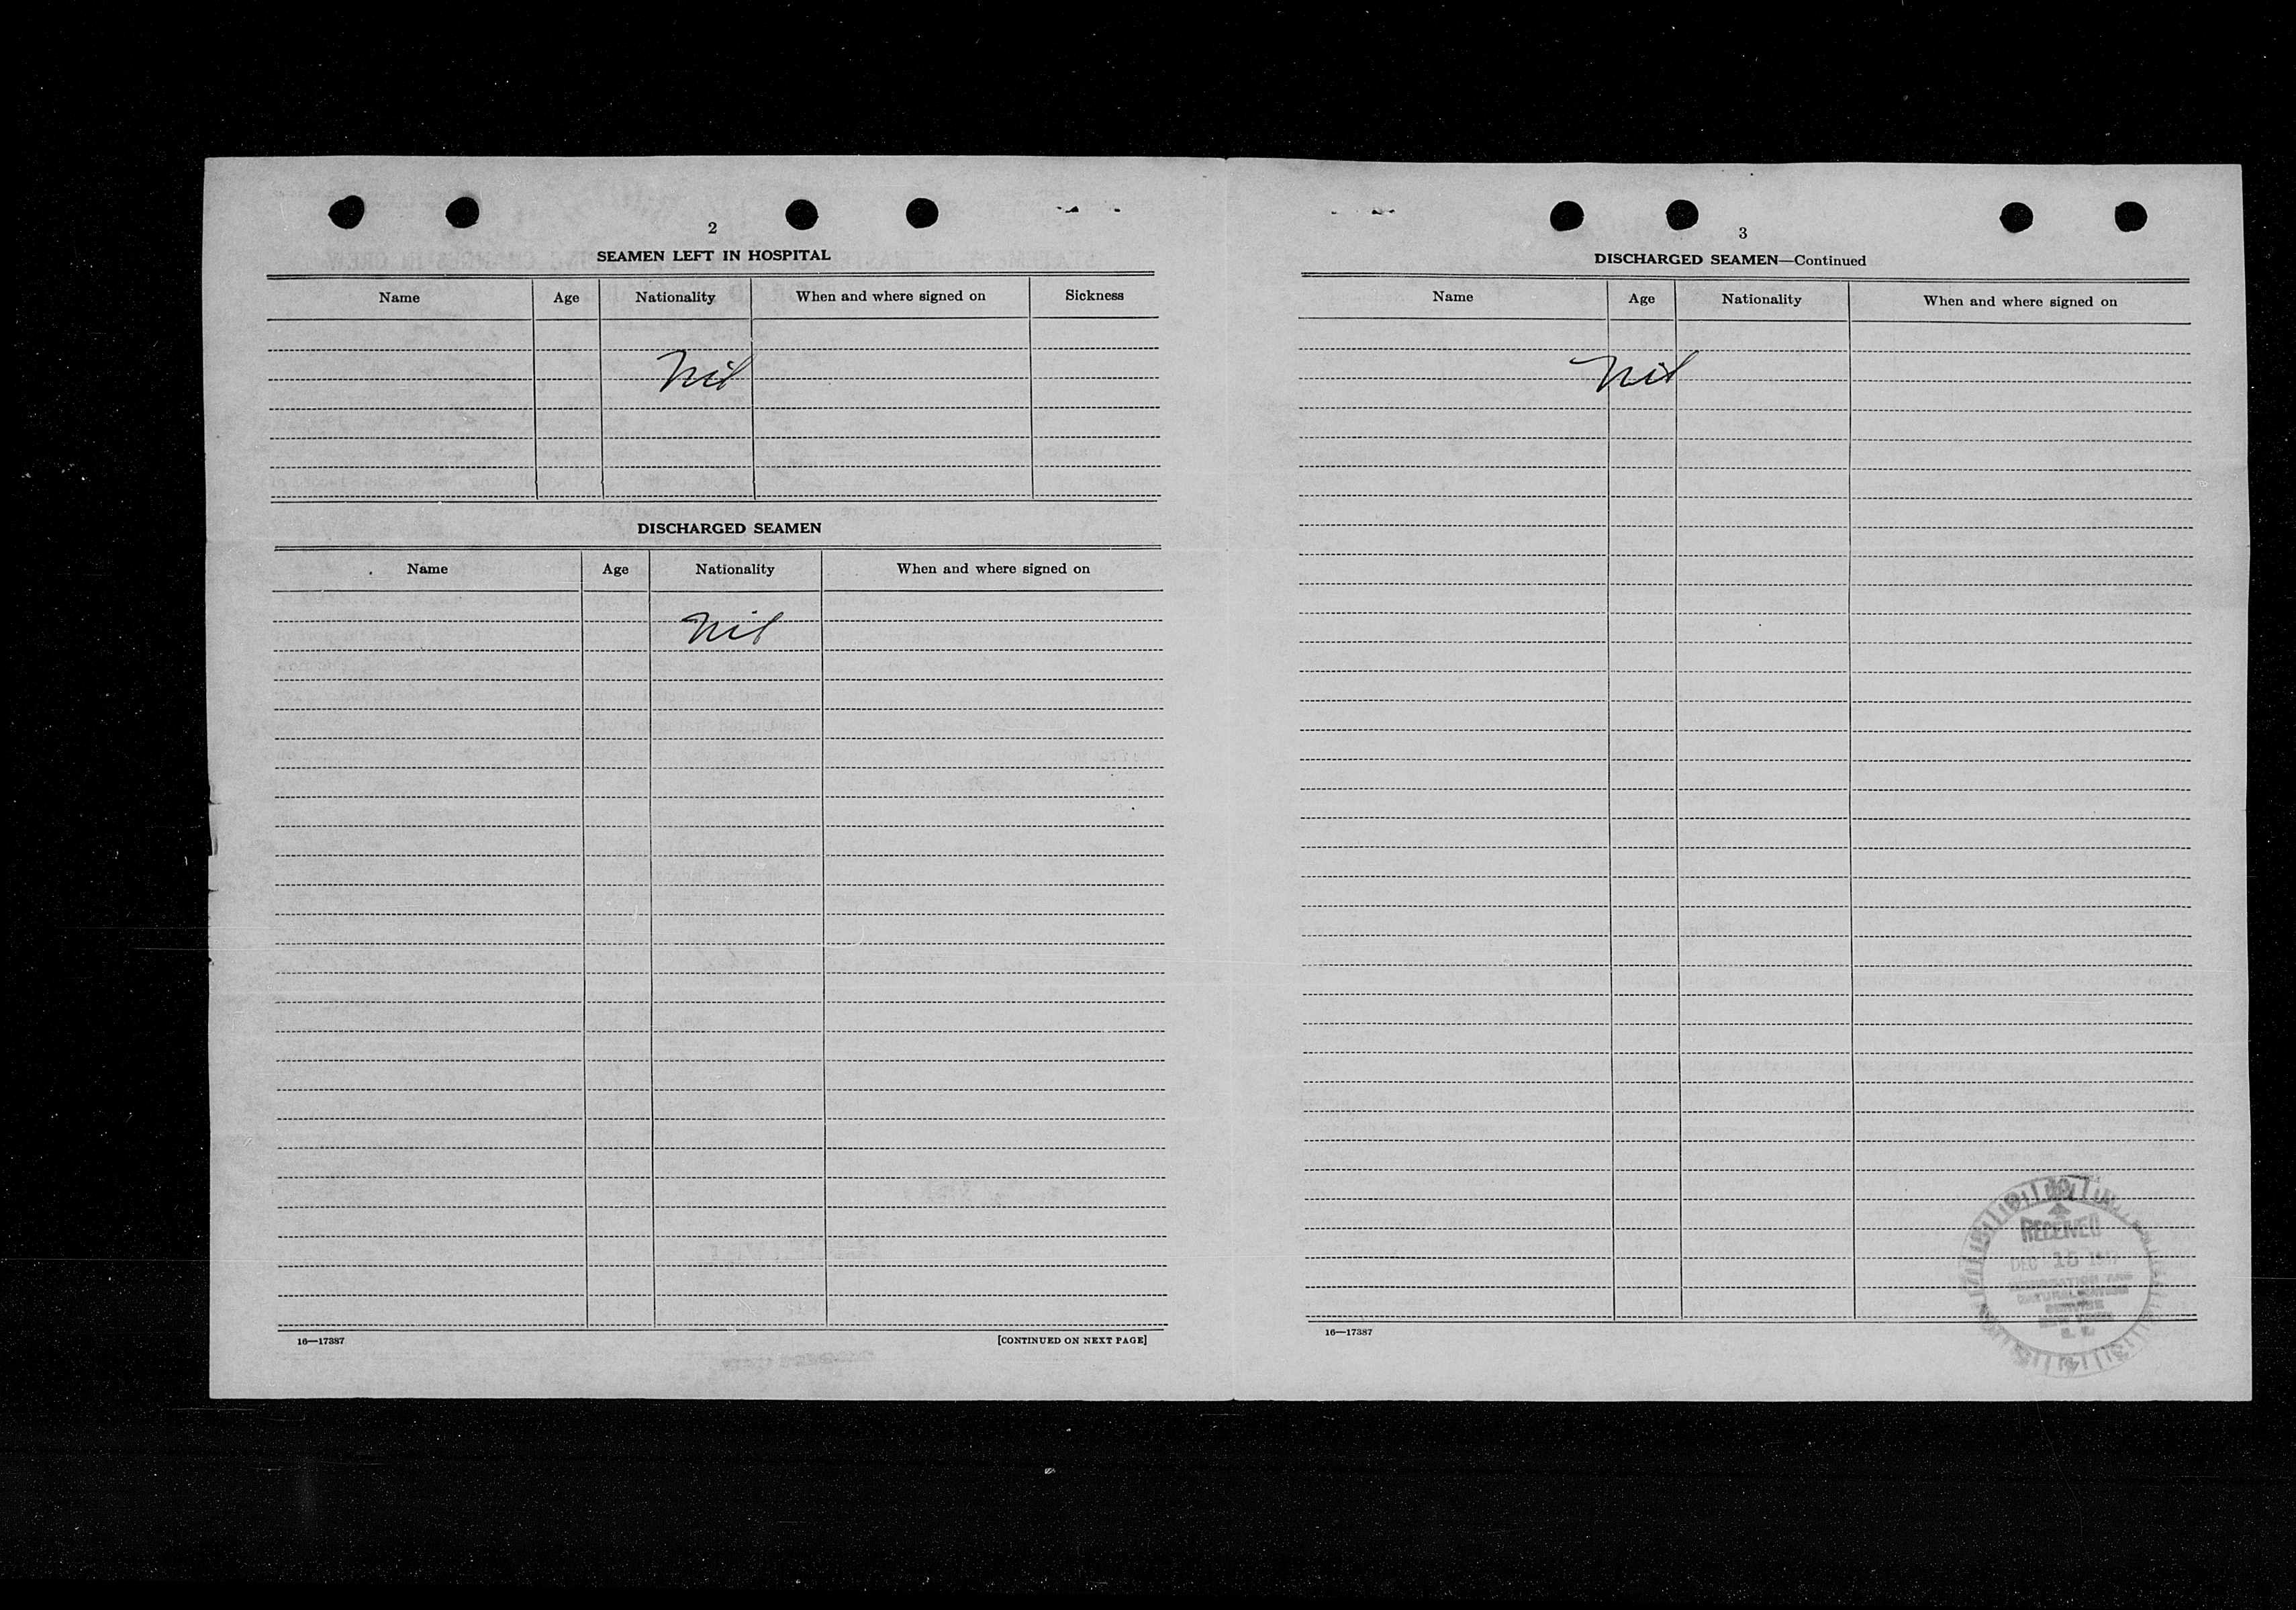 2
SEAMEN LEFT IN HOSPITAL
Name Age Nationality When and where signed on Sickness
Nil
DISCHARGED SEAMEN
Name Age Nationality When and where signed on
Nil
16—17387 [CONTINUED ON NEXT PAGE]
3
DISCHARGED SEAMEN—Continued
Name Age Nationality When and where signed on
Nil
RECEIVED
DEC 15 1947
IMMIGRATION AND
NATURALIZATION
SERVICE
NEW YORK
N. Y.
16—17387